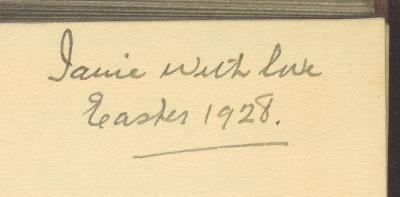 Janie with love
Easter 1928.